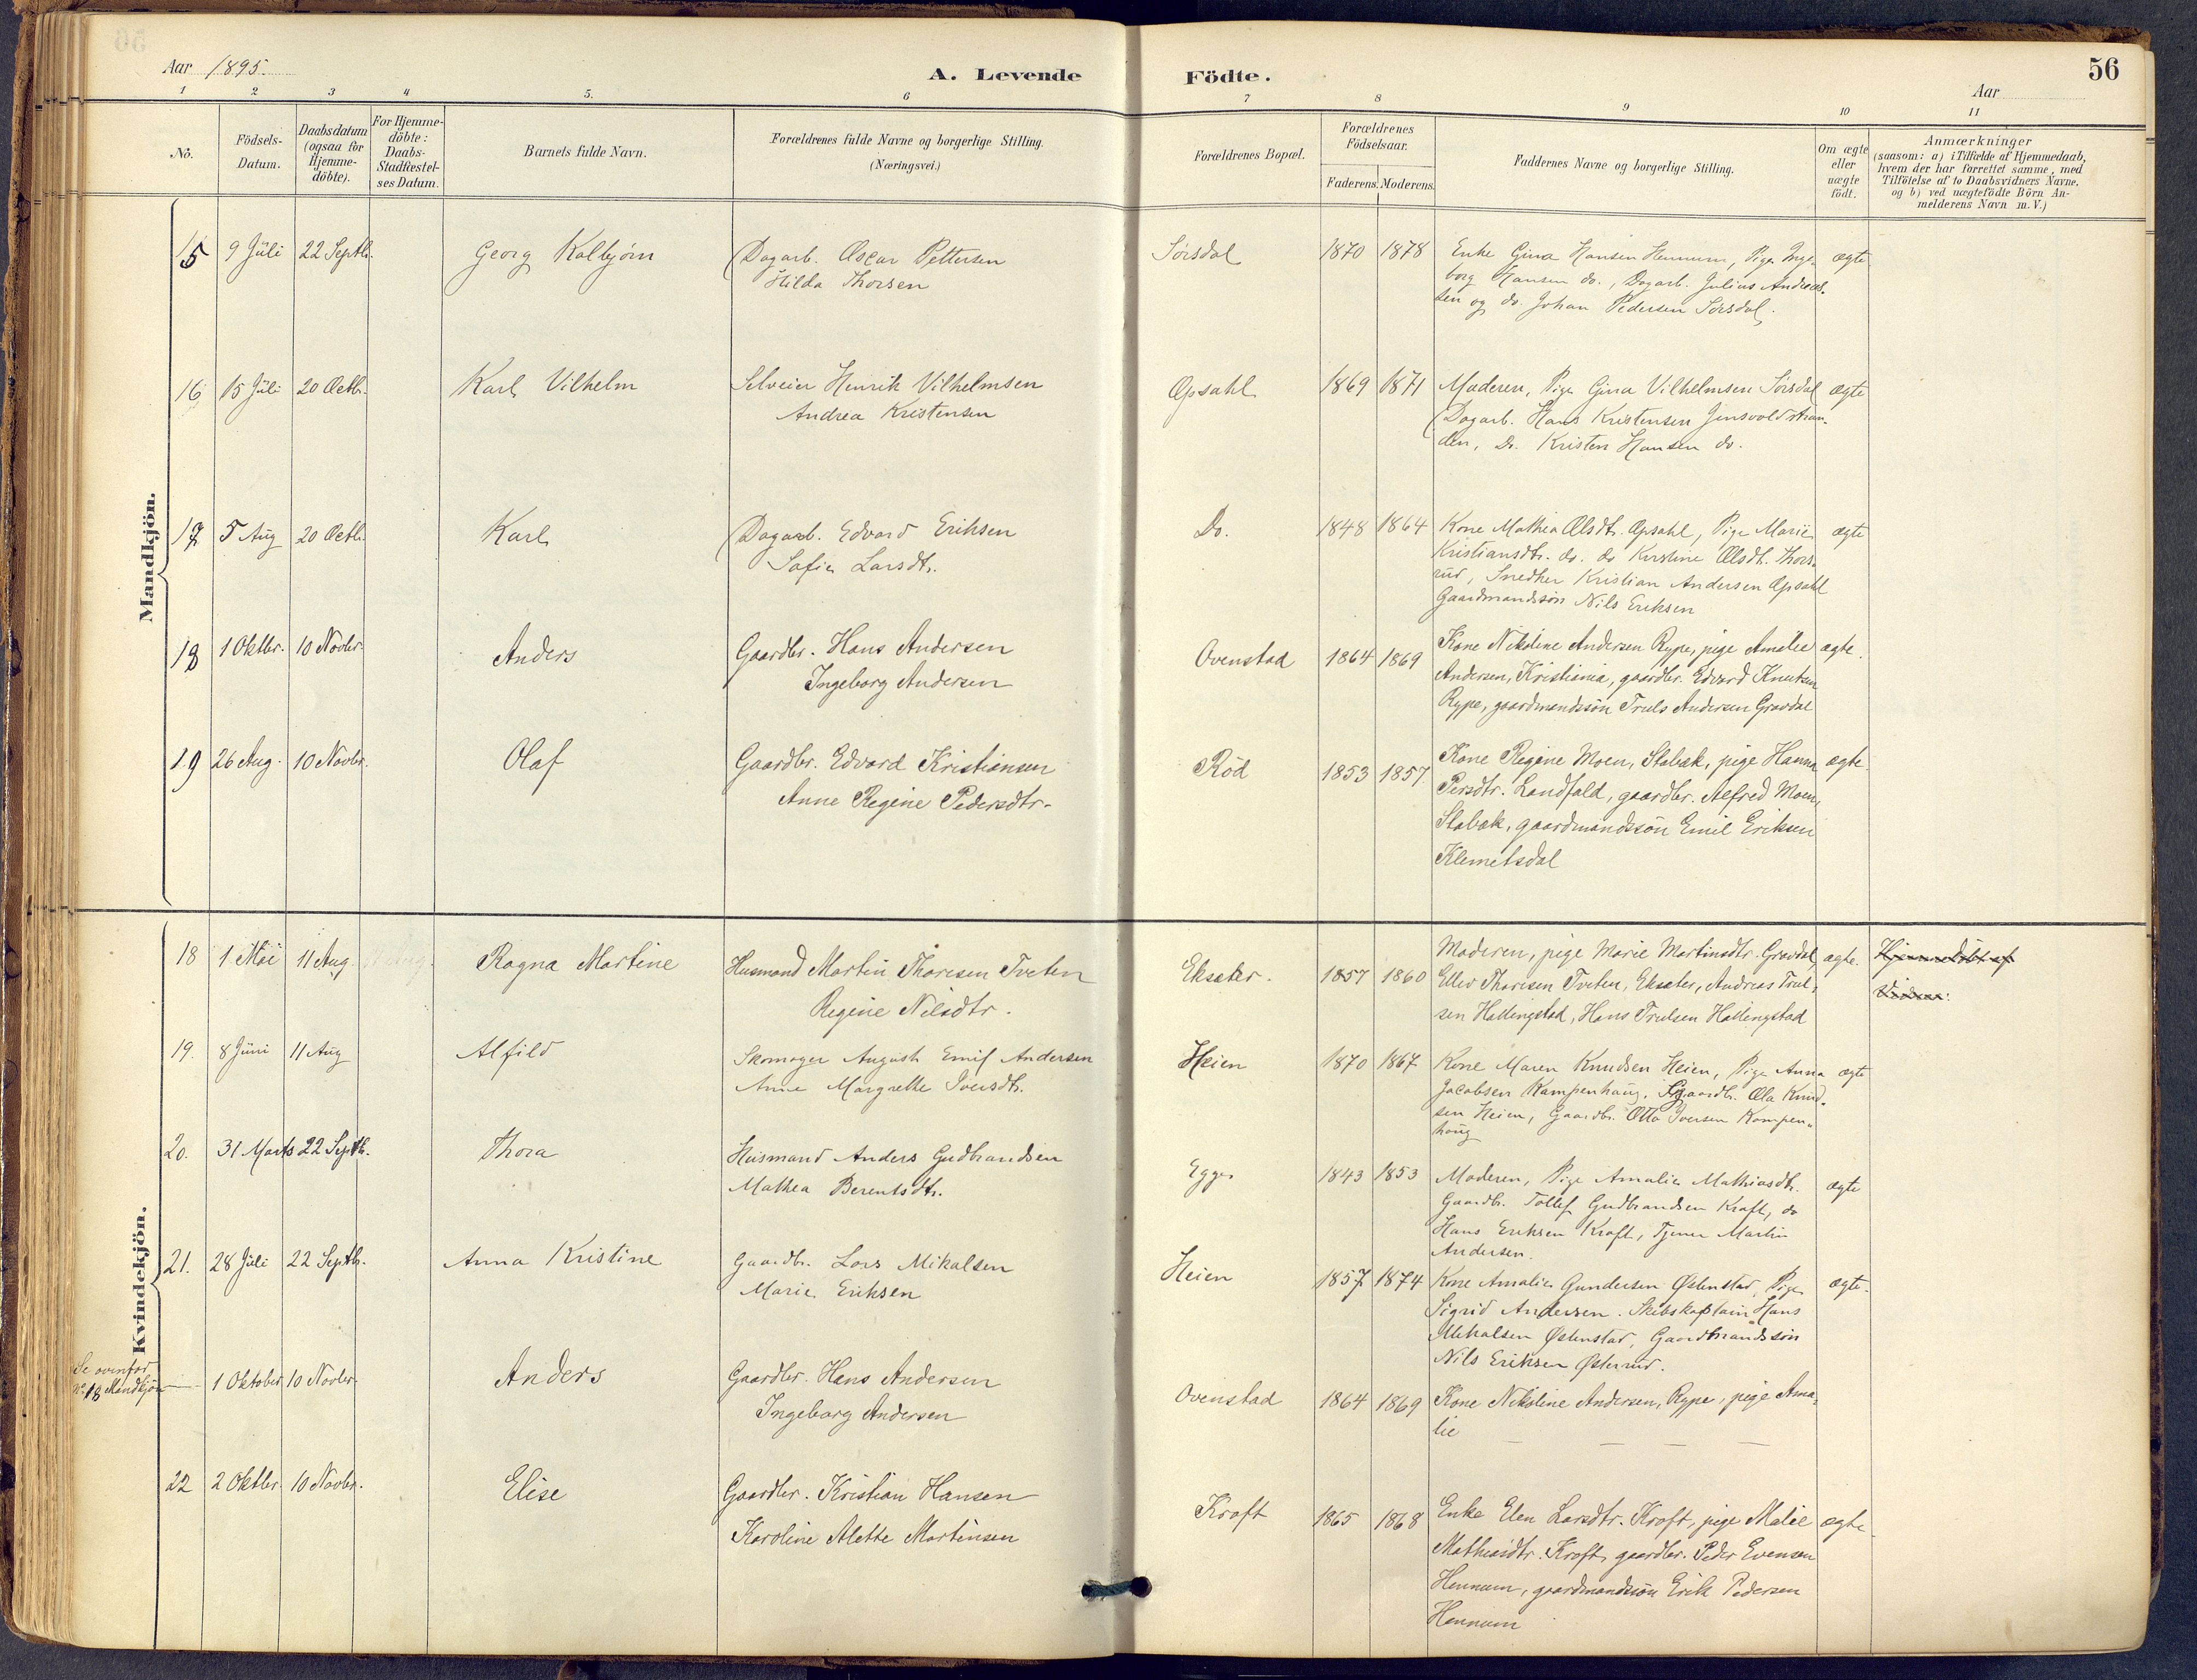 56
Aar 1895.
A. Levende Födte.
Aar
1 2 3 4 5. 6 7 8 9 10 11
No.
Födsels-Datum.
Daabsdatum (ogsaa for Hjemme-döbte).
For Hjemme-döbte: Daabs-Stadfæstel-ses Datum.
Barnets fulde Navn.
Forældrenes fulde Navne og borgerlige Stilling.
(Næringsvei.)
Forældrenes Bopæl.
Forældrenes Födselsaar.
Faderens. Moderens.
Faddernes Navne og borgerlige Stilling.
Om ægte eller uægte födt.
Anmærkninger
(saasom: a) i Tilfælde af Hjemmedaab, hvem der har forrettet samme, med Tilföielse af to Daabsvidners Navne, og b) ved uægtefödte Börn An-melderens Navn m. V.)
Mandkjön.
15 9 Juli 22 Septb. Georg Kolbjørn Dagarb. Oscar Pettersen
Hilda Thorsen
Sørsdal 1870 1878 Enke Gina Hansen Hennum, Pige Inge-
borg Hansen do., Dagarb. Julius Andreas-
sen og do. Johan Pedersen Sørsdal.
ægte
16 15 Juli 20 Octb. Karl Vilhelm Selveier Henrik Vilhelmsen
Andrea Kristensen
Opsahl 1869 1871 Moderen, Pige Gina Vilhelmsen Sørsdal
Dagarb. Hans Kristensen Jensvoldstran-
den, Do. Kristen Hansen do.
ægte
17 5 Aug 20 Octb. Karl Dagarb. Edvard Eriksen
Sofie Larsdt.
Do. 1848 1864 Kone Mathea Olsdt. Opsahl, Pige Marie
Kristiansdt. do. do Kirstine Olsdt. Thors-
rud, Snedker Kristian Andersen Opsahl
Gaardmandssøn Nils Eriksen
ægte
18 1 Oktbr. 10 Novbr. Anders Gaardbr. Hans Andersen
Ingeborg Andersen
Ovenstad 1864 1869 Kone Nikoline Andersen Rype, pige Amalie
Andersen, Kristiania, gaardbr. Edvard Knutsen
Rype, gaardmandssön Truls Andersen Gravdal
ægte.
19 26 Aug. 10 Novbr. Olaf Gaardbr. Edvard Kristiansen
Anne Regine Pedersdtr.
Röd 1853 1857 Kone Regine Moen, Stabæk, pige Hanna
Persdtr. Landfald, gaardbr. Alfred Moen,
Stabæk, gaardmandssön Emil Eriksen
Klemetsdal
ægte.
Kvindekjön.
18 1 Mai 11 Aug. Ragna Martine Husmand Martin Thoresen Tveten
Regine Nilsdtr.
Eksæter. 1857 1860 Moderen, pige Marie Martinsdtr. Gravdal,
Ellev Thoresen Tveten, Eksæter, Andreas Trul-
sen Hallingstad, Hans Trulsen Hallingstad
ægte. Hjemmedöbt af
19. 8 Juni 11 Aug Alfild Skomager August Emil Andersen
Anne Margrethe Iversdt.
Heien 1870 1867 Kone Maren Knudsen Heien, Pige Anna
Jacobsen Kampenhaug, Gaardb. Ola Knud-
sen Heien, Gaardbr. Otto Iversen Kampen-
haug
ægte
20. 31 Marts 22 Septb. Thora Husmand Anders Gudbrandsen
Mathea Berentsdt.
Egge 1843 1853 Moderen, Pige Amalie Mathiasdt.
Gaardb. Tollef Gudbrandsen Kraft, do
Hans Eriksen Kraft, Tjener Martin
Andersen.
ægte
21. 28 Juli 22 Septb. Anna Kristine Gaardb. Lars Mikalsen
Marie Eriksen
Heien 1857 1874 Kone Amalie Gundersen Østenstad, Pige
Sigrid Andersen. Skibskaptain Hans
Mikalsen Østenstad, Gaardmandssøn
Nils Eriksen Østerud.
ægte.
Se ovenfor
No 18 Mandkjön
1 Oktober 10 Novbr. Anders Gaardbr. Hans Andersen
Ingeborg Andersen
Ovenstad 1864 1869 Kone Nikoline Andersen, Rype, pige Ama-
lie — — — —
22 2 Oktbr. 10 Novbr. Elise Gaardbr. Kristian Hansen
Karoline Alette Martinsen
Kroft 1865 1868 Enke Elen Larsdtr. Kroft, pige Malie
Mathiasdtr. Kroft, gaardbr. Peder Evensen
Hennum, gaardmandssön Erik Pedersen
Hennum
ægte.